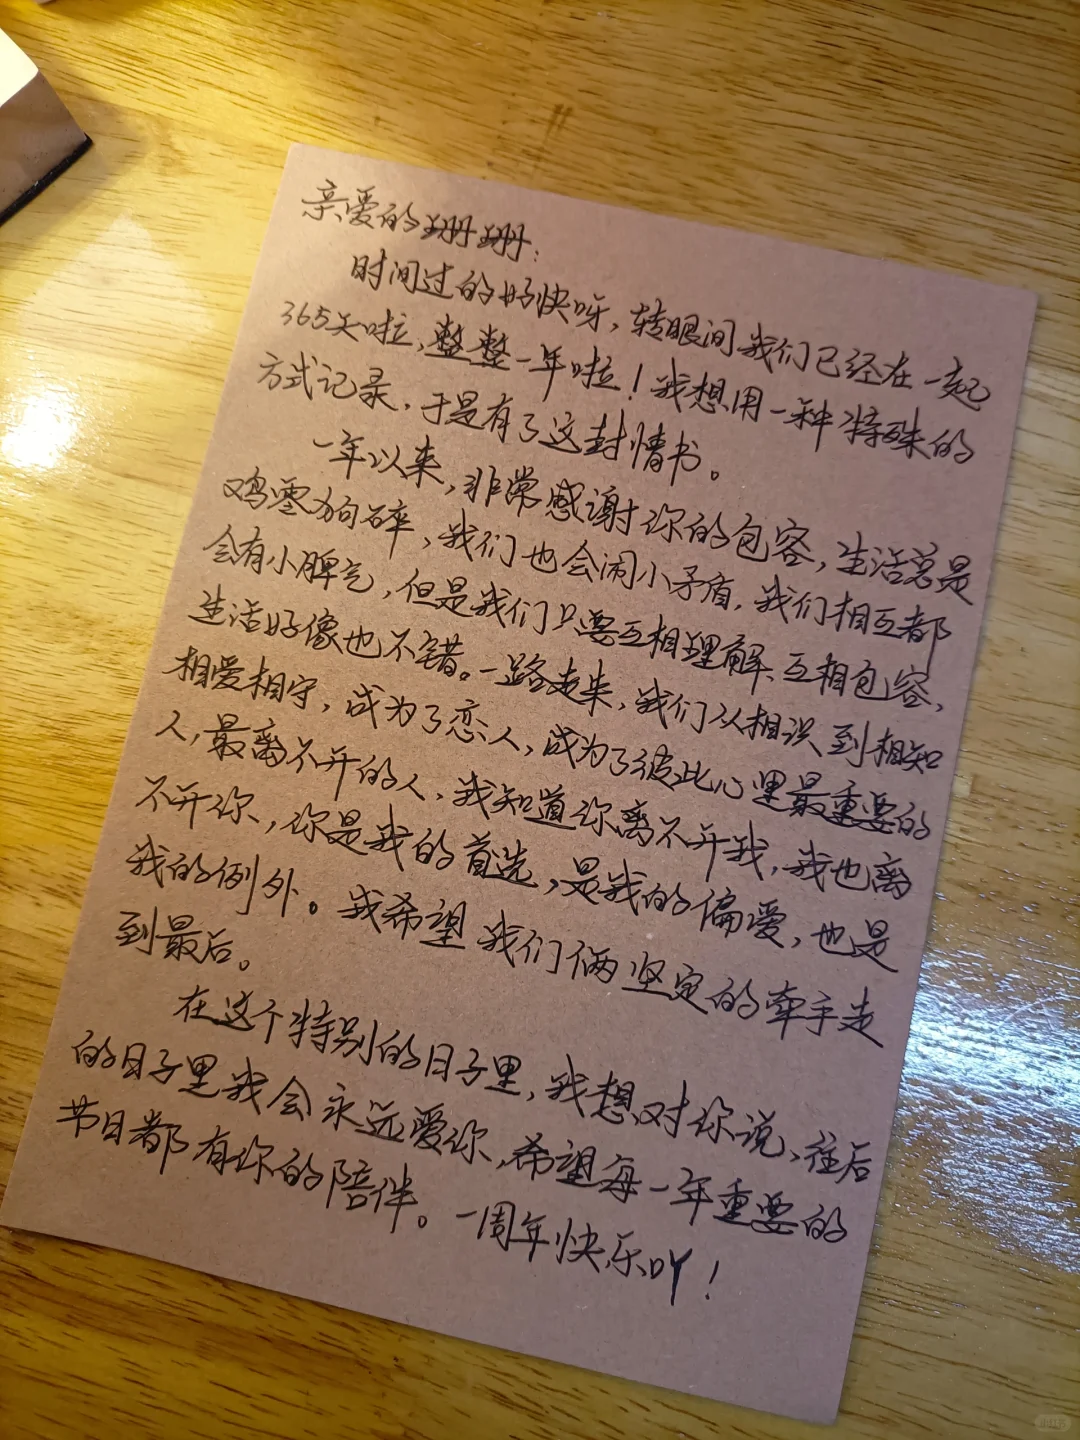 亲爱的珊珊:
时间过的好快呀,转眼间我们已经在一起
365天啦,整整一年啦!我想用一种特殊的
方式记录,于是有了这封情书。
一年以来,非常感谢你的包容,生活总是
鸡零狗碎,我们也会闹小矛盾,我们相互都
会有小脾气,但是我们只要互相理解、互相包容,
生活好像也不错。一路走来,我们从相识到相知
相爱相守,成为了恋人,成为了彼此心里最重要的
人,最离不开的人,我知道你离不开我,我也离
不开你,你是我的首选,是我的偏爱,也是
我的例外。我希望我们俩坚定的牵手走
到最后。
在这个特别的日子里,我想对你说,往后
的日子里我会永远爱你,希望每一年重要的
节日都有你的陪伴。一周年快乐吖!
小红书